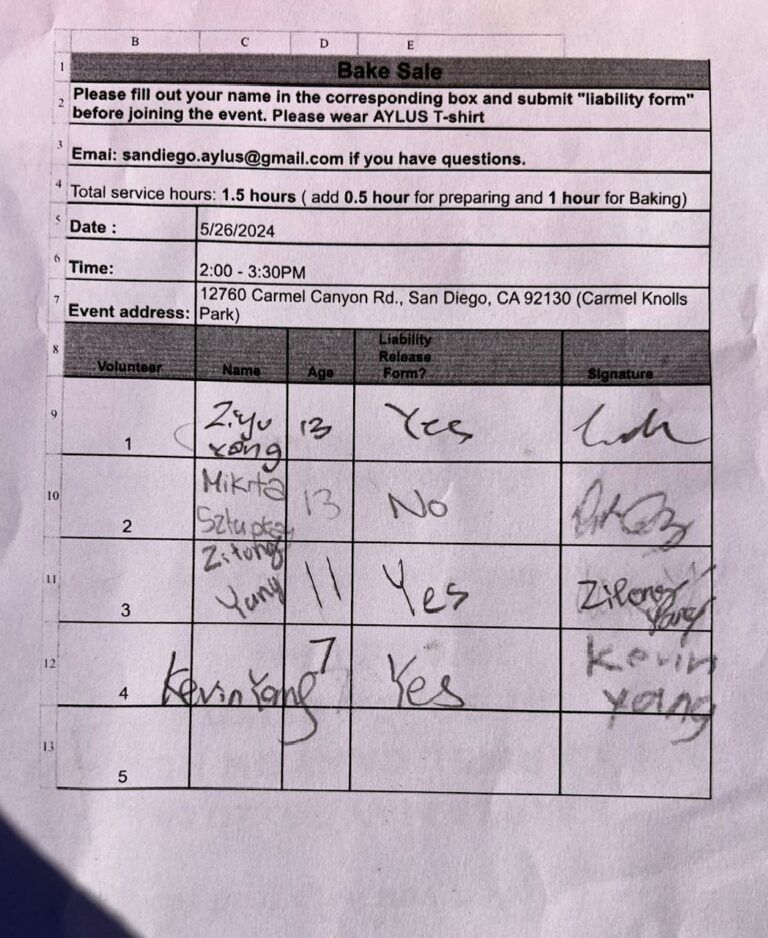 B C D E
1 Bake Sale
2 Please fill out your name in the corresponding box and submit "liability form"
before joining the event. Please wear AYLUS T-shirt
3 Emai: sandiego.aylus@gmail.com if you have questions.
4 Total service hours: 1.5 hours ( add 0.5 hour for preparing and 1 hour for Baking)
5 Date : 5/26/2024
6 Time: 2:00 - 3:30PM
7 Event address: 12760 Carmel Canyon Rd., San Diego, CA 92130 (Carmel Knolls
Park)
8 Volunteer Name Age Liability
Release
Form? Signature
9 1 Ziyu
Yang 13 Yes
10 2 Mikita
13 No
11 3 Zitong
Yang 11 Yes Zitong
Yang
12 4 Kevin Yang 7 Yes Kevin
Yang
13 5